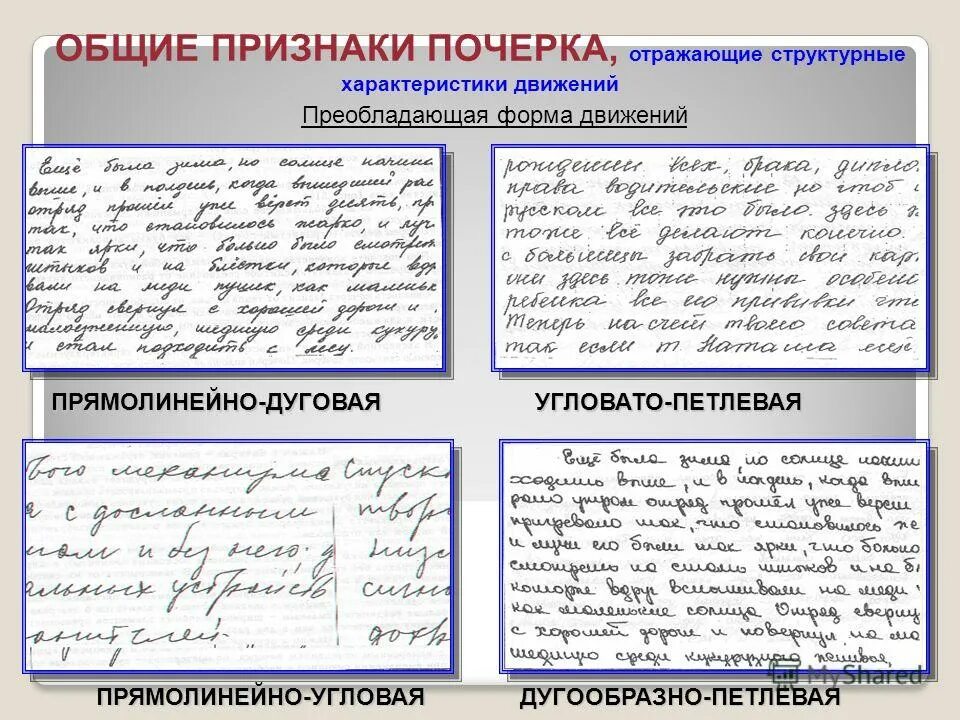 ОБЩИЕ ПРИЗНАКИ ПОЧЕРКА, отражающие структурные
характеристики движений
Преобладающая форма движений
Ещё была зима, но солнце начина
выше, и в полдень, когда вышедший ра
отряд прошёл уже вёрст десять, пр
так, что становилось жарко, и луч
так ярки, что больно было смотреть
штыков и на блёстки, которые вдр
вали на меди пушек, как маленьк
Отряд свернул с хорошей дороги и
малоезженную, шедшую среди кукуру
и стал подходить с лесу.
рождении всех, брака, дипло
права водительские но чтоб
русском все это было. здесь
тоже всё делают конечно.
с больницы забрать свои кар
они здесь тоже нужны особено
ребенка все его прививки что
Теперь на счет твоего совета
так если т Наташа ещё
ПРЯМОЛИНЕЙНО-ДУГОВАЯ
УГЛОВАТО-ПЕТЛЕВАЯ
вого механизма спуск
я с досланным
и без него.
альных устройств
Ещё была зима, но солнце начин
ходить выше, и в полдень, когда выш
рано утром отряд прошёл уже верст
пригревало так, что становилось жа
и лучи его были так ярки, что больно
смотреть на сталь штыков и на б
которые вдруг вспыхивали на меди
как маленькие солнца Отряд сверну
с хорошей дороги и повернул на ма
шедшую среди кукурузного жнивья,
ПРЯМОЛИНЕЙНО-УГЛОВАЯ
ДУГООБРАЗНО-ПЕТЛЕВАЯ
MyShared